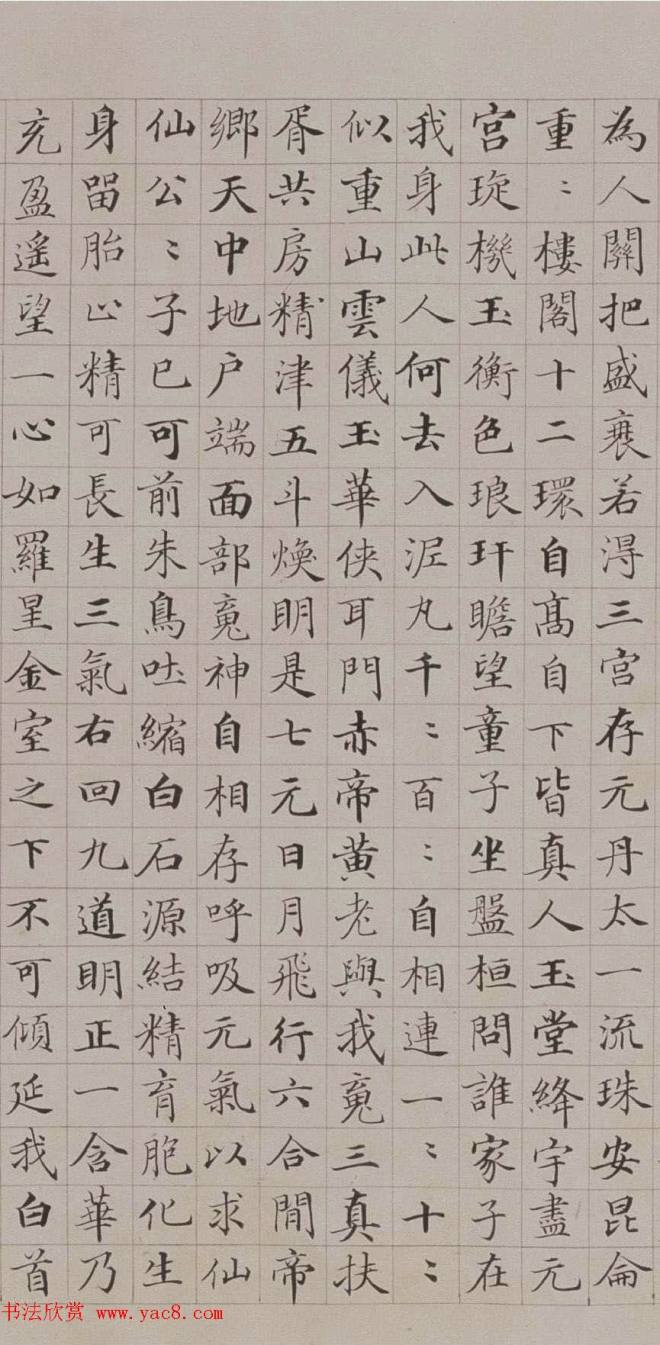 為人關把盛衰若淂三宮存元丹太一流珠安昆侖
重〻樓閣十二環自髙自下皆真人玉堂絳宇盡元
宮琁機玉衡色琅玕瞻望童子坐盤桓問誰家子在
我身此人何去入泥丸千〻百〻自相連一〻十〻
似重山雲儀玉華俠耳門赤帝黃老與我䰟三真扶
胥共房精津五斗煥明是七元日月飛行六合間帝
鄉天中地户端面部䰟神自相存呼吸元氣以求仙
仙公〻子已可前朱鳥吐縮白石源結精育胞化生
身留胎止精可長生三氣右回九道明正一含華乃
充盈遥望一心如羅星金室之下不可傾延我白首
书法欣赏 www.yac8.com